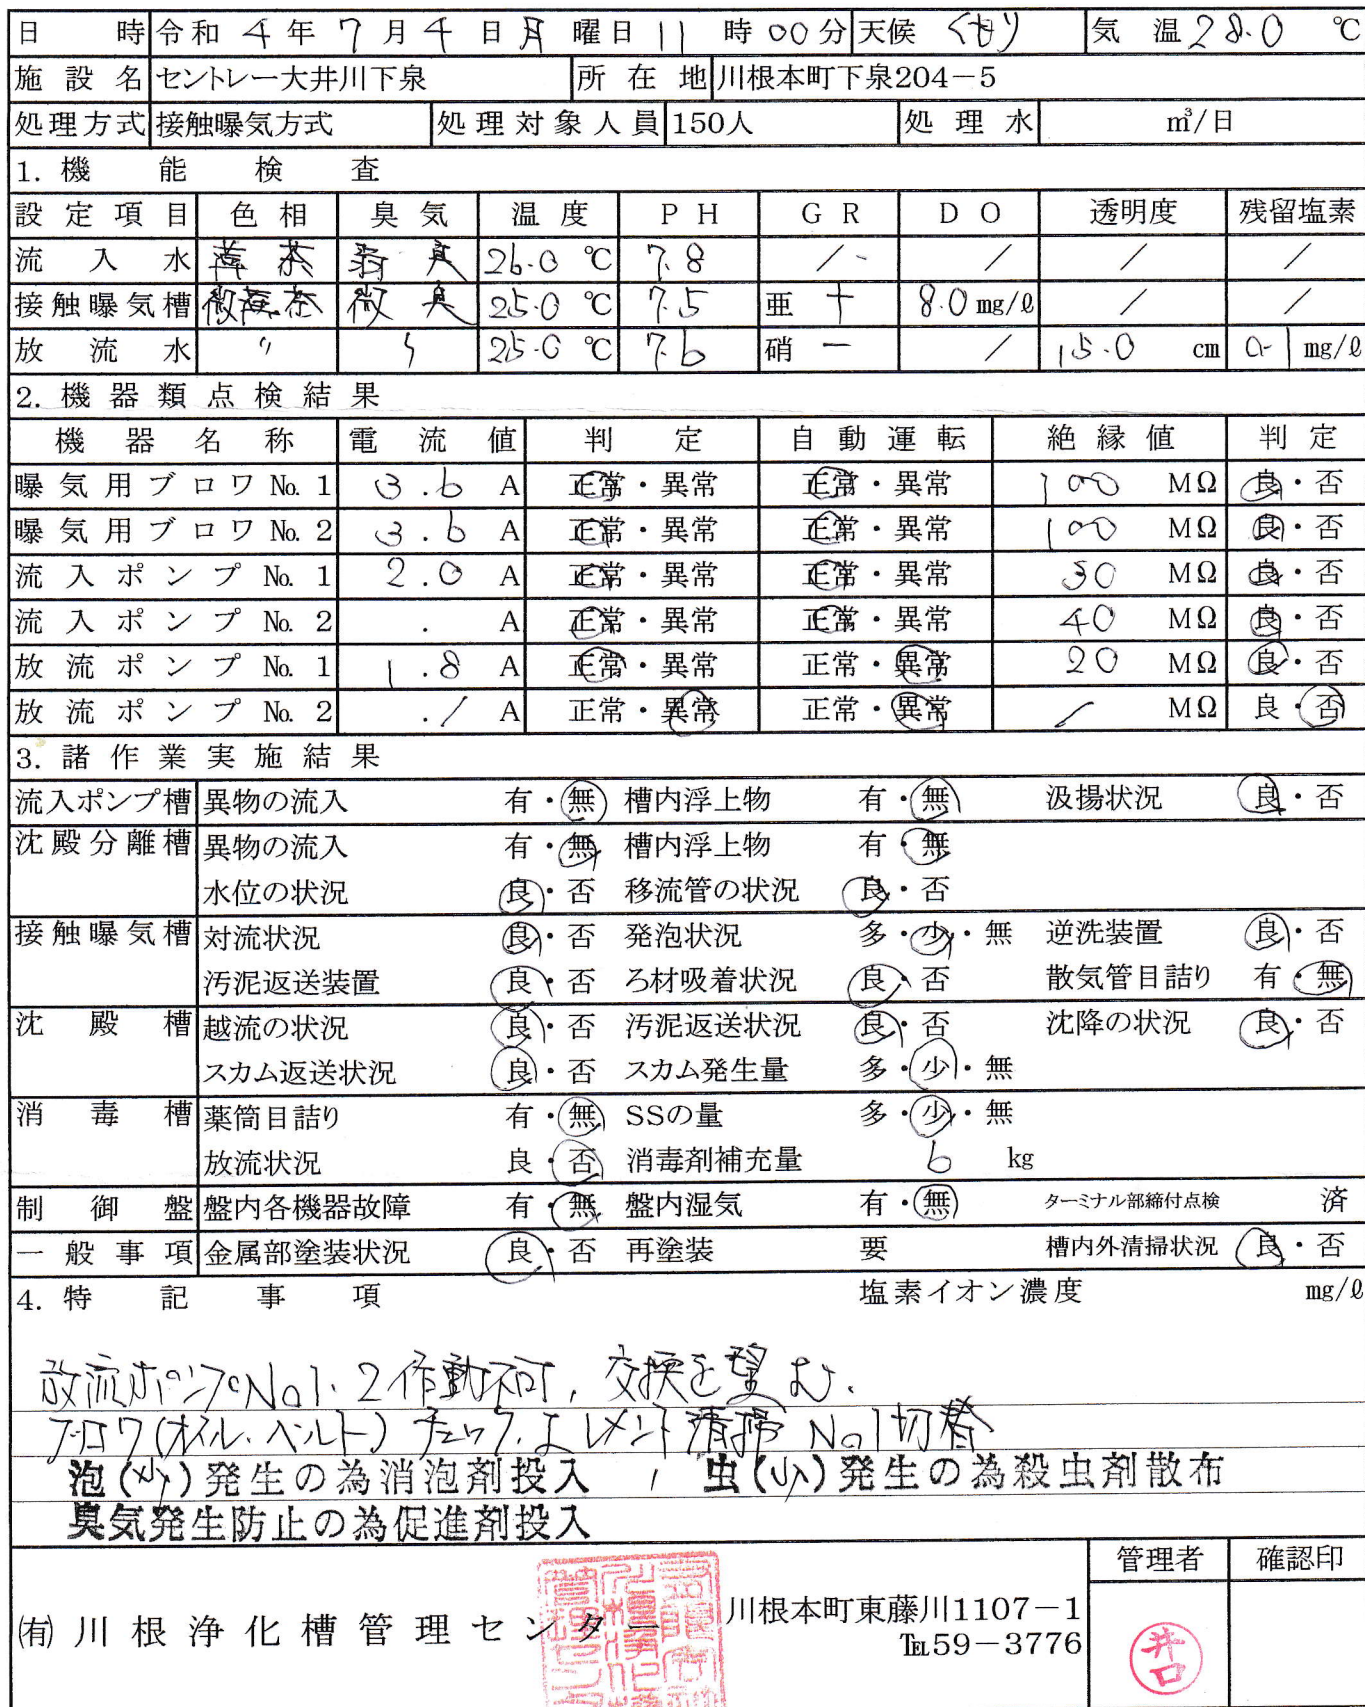 日 時 令和 4 年 7 月 4 日 月 曜日 11 時 00 分 天候 くもり 気 温 28.0 ℃
施 設 名 セントレー大井川下泉 所 在 地 川根本町下泉204－5
処理方式 接触曝気方式 処 理 対 象 人 員 150人 処 理 水 ㎥/日
1. 機 能 検 査
設 定 項 目 色 相 臭 気 温 度 P H G R D O 透明度 残留塩素
流 入 水 茶 臭 26.0 ℃ 7.8 / / / /
接触曝気槽 微 茶 微 臭 25.0 ℃ 7.5 亜 ＋ 8.0 mg/ℓ / /
放 流 水 〃 〃 25.0 ℃ 7.6 硝 － / 15.0 cm 0.1 mg/ℓ
2. 機 器 類 点 検 結 果
機 器 名 称 電 流 値 判 定 自 動 運 転 絶 縁 値 判 定
曝 気 用 ブ ロ ワ № 1 3.6 A 正常・異常 正常・異常 100 MΩ 良・否
曝 気 用 ブ ロ ワ № 2 3.6 A 正常・異常 正常・異常 100 MΩ 良・否
流 入 ポ ン プ № 1 2.0 A 正常・異常 正常・異常 30 MΩ 良・否
流 入 ポ ン プ № 2 . A 正常・異常 正常・異常 40 MΩ 良・否
放 流 ポ ン プ № 1 1.8 A 正常・異常 正常・異常 20 MΩ 良・否
放 流 ポ ン プ № 2 ./ A 正常・異常 正常・異常 / MΩ 良・否
3. 諸 作 業 実 施 結 果
流入ポンプ槽 異物の流入 有・無 槽内浮上物 有・無 汲揚状況 良・否
沈殿分離槽 異物の流入 有・無 槽内浮上物 有・無
水位の状況 良・否 移流管の状況 良・否
接触曝気槽 対流状況 良・否 発泡状況 多・少・無 逆洗装置 良・否
汚泥返送装置 良・否 ろ材吸着状況 良・否 散気管目詰り 有・無
沈 殿 槽 越流の状況 良・否 汚泥返送状況 良・否 沈降の状況 良・否
スカム返送状況 良・否 スカム発生量 多・少・無
消 毒 槽 薬筒目詰り 有・無 SSの量 多・少・無
放流状況 良・否 消毒剤補充量 6 kg
制 御 盤 盤内各機器故障 有・無 盤内湿気 有・無 ターミナル部締付点検 済
一 般 事 項 金属部塗装状況 良・否 再塗装 要 槽内外清掃状況 良・否
4. 特 記 事 項 塩素イオン濃度 mg/ℓ
放流ポンプNo1.2作動不可, 交換を望む.
ブロワ(オイル、ベルト)チェック.エレメント清掃 No1切替
泡(少)発生の為消泡剤投入 , 虫(少)発生の為殺虫剤散布
臭気発生防止の為促進剤投入
管理者 確認印
㈲ 川 根 浄 化 槽 管 理 セ ン タ ー 川根本町東藤川1107－1
℡59－3776
井口